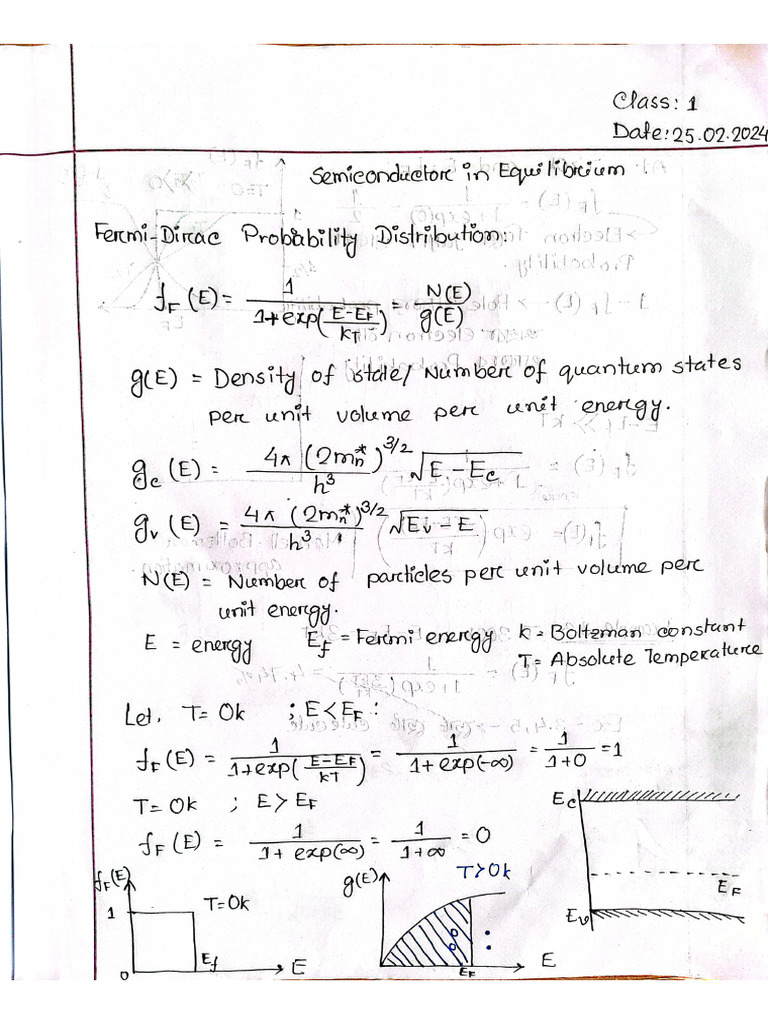 Class: 1
Date: 25.02.2024
Semiconductor in Equilibrium :
Fermi-Dirac Probability Distribution:
f_F (E) = 1 / (1 + exp((E - E_F) / kT)) = N(E) / g(E)
g(E) = Density of state/ Number of quantum states
per unit volume per unit energy.
g_c (E) = (4π (2m_n*)^3/2 / h³) √(E - E_c)
g_v (E) = (4π (2m_n*)^3/2 / h³) √(E_v - E)
N(E) = Number of particles per unit volume per
unit energy.
E = energy E_f = Fermi energy k = Boltzman constant
T = Absolute Temperature
Let, T = 0k ; E < E_F :
f_F (E) = 1 / (1 + exp((E - E_F) / kT)) = 1 / (1 + exp(-∞)) = 1 / (1+0) = 1
T = 0k ; E > E_F
f_F (E) = 1 / (1 + exp(∞)) = 1 / (1+∞) = 0
f_F(E) 1 T=0k 0 E_f E
g(E) T>0k E_F E
E_c E_F E_v